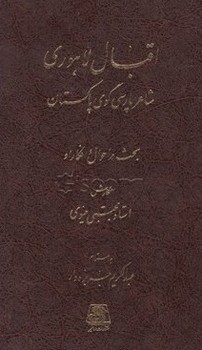 اقبال لاهوری
شاعر پارسی گوی پاکستان
بحث در احوال و افکار او
نگارش
استاد مجتبی مینوی
به اهتمام
عبدالکریم جربزه دار